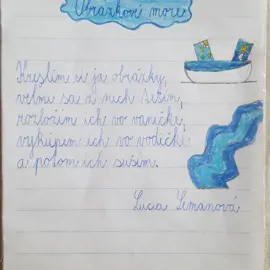 Obrázkové more
Kreslím si ja obrázky,
veľmi sa z nich teším,
rozložím ich vo vaničke,
vykúpem ich vo vodičke
a potom ich suším.
Lucia Simanová